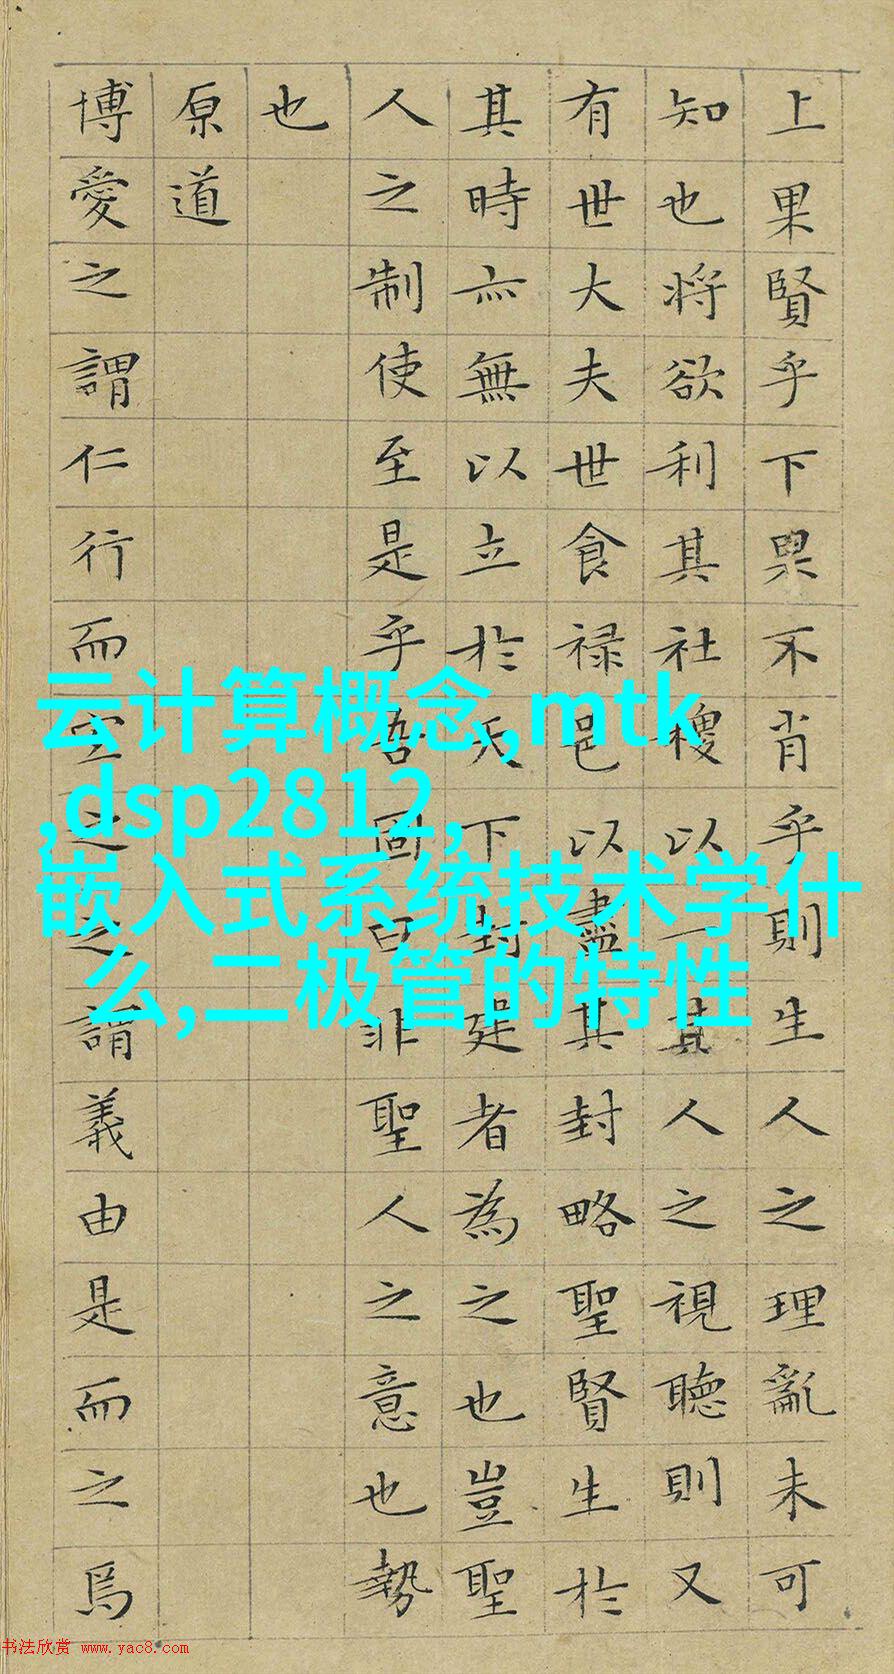 上果賢乎下果不肖乎則生人之理亂未可
知也将欲利其社稷以一其人之視聽則又
有世大夫世食禄邑以盡其封略聖賢生於
其時亦無以立於天下封建者為之也豈聖
人之制使至是乎吾固曰非聖人之意也勢
也
原道
博愛之謂仁行而宜之之謂義由是而之焉
云计算概念,mtk
,dsp2812,
嵌入式系统技术学什
么,二极管的特性
书法欣赏 www.yac8.com